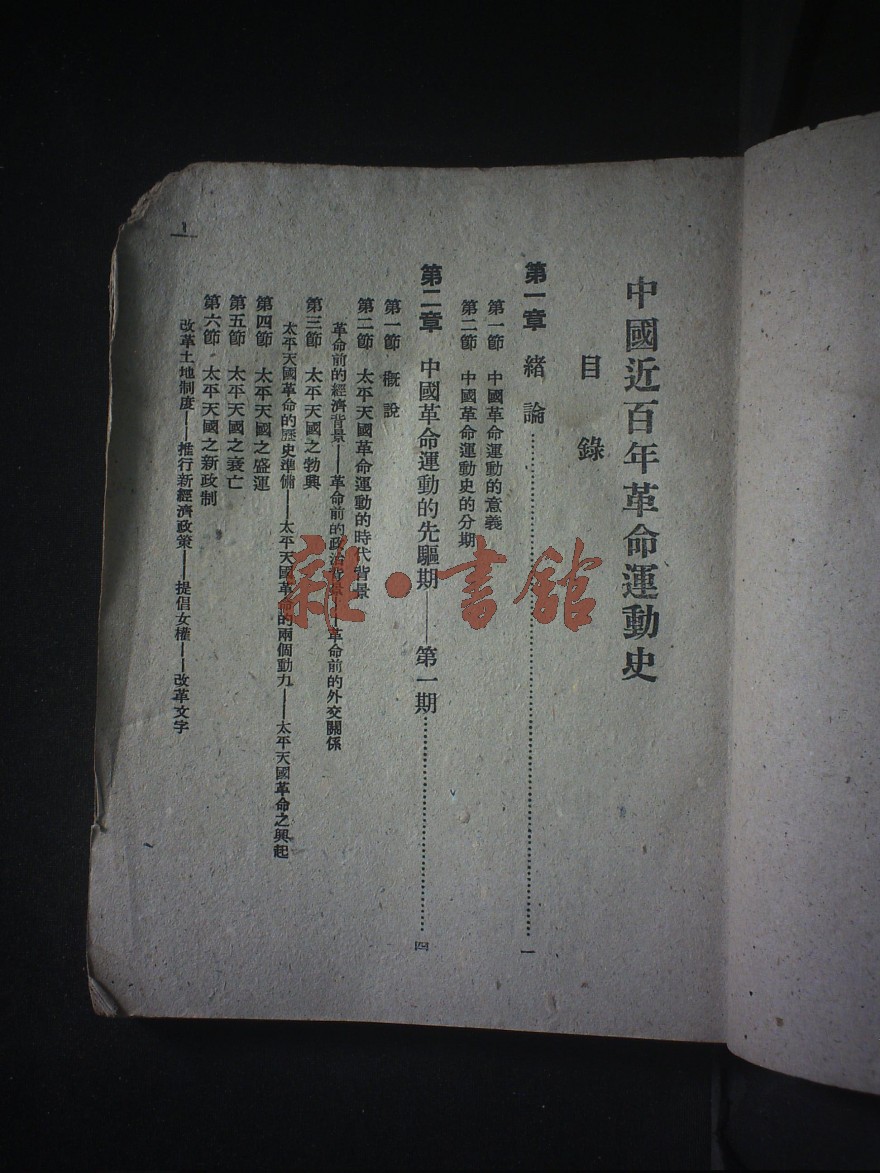 中國近百年革命運動史
目錄
第一章 緒論……一
第一節 中國革命運動的意義
第二節 中國革命運動史的分期
第二章 中國革命運動的先驅期——第一期……四
第一節 概說
第二節 太平天國革命運動的時代背景
革命前的經濟背景——革命前的政治背景——革命前的外交關係
第三節 太平天國之勃興
太平天國革命的歷史準備——太平天國革命的兩個動力——太平天國革命之興起
第四節 太平天國之盛運
第五節 太平天國之衰亡
第六節 太平天國之新政制
改革土地制度——推行新經濟政策——提倡女權——改革文字
一
雜·書館